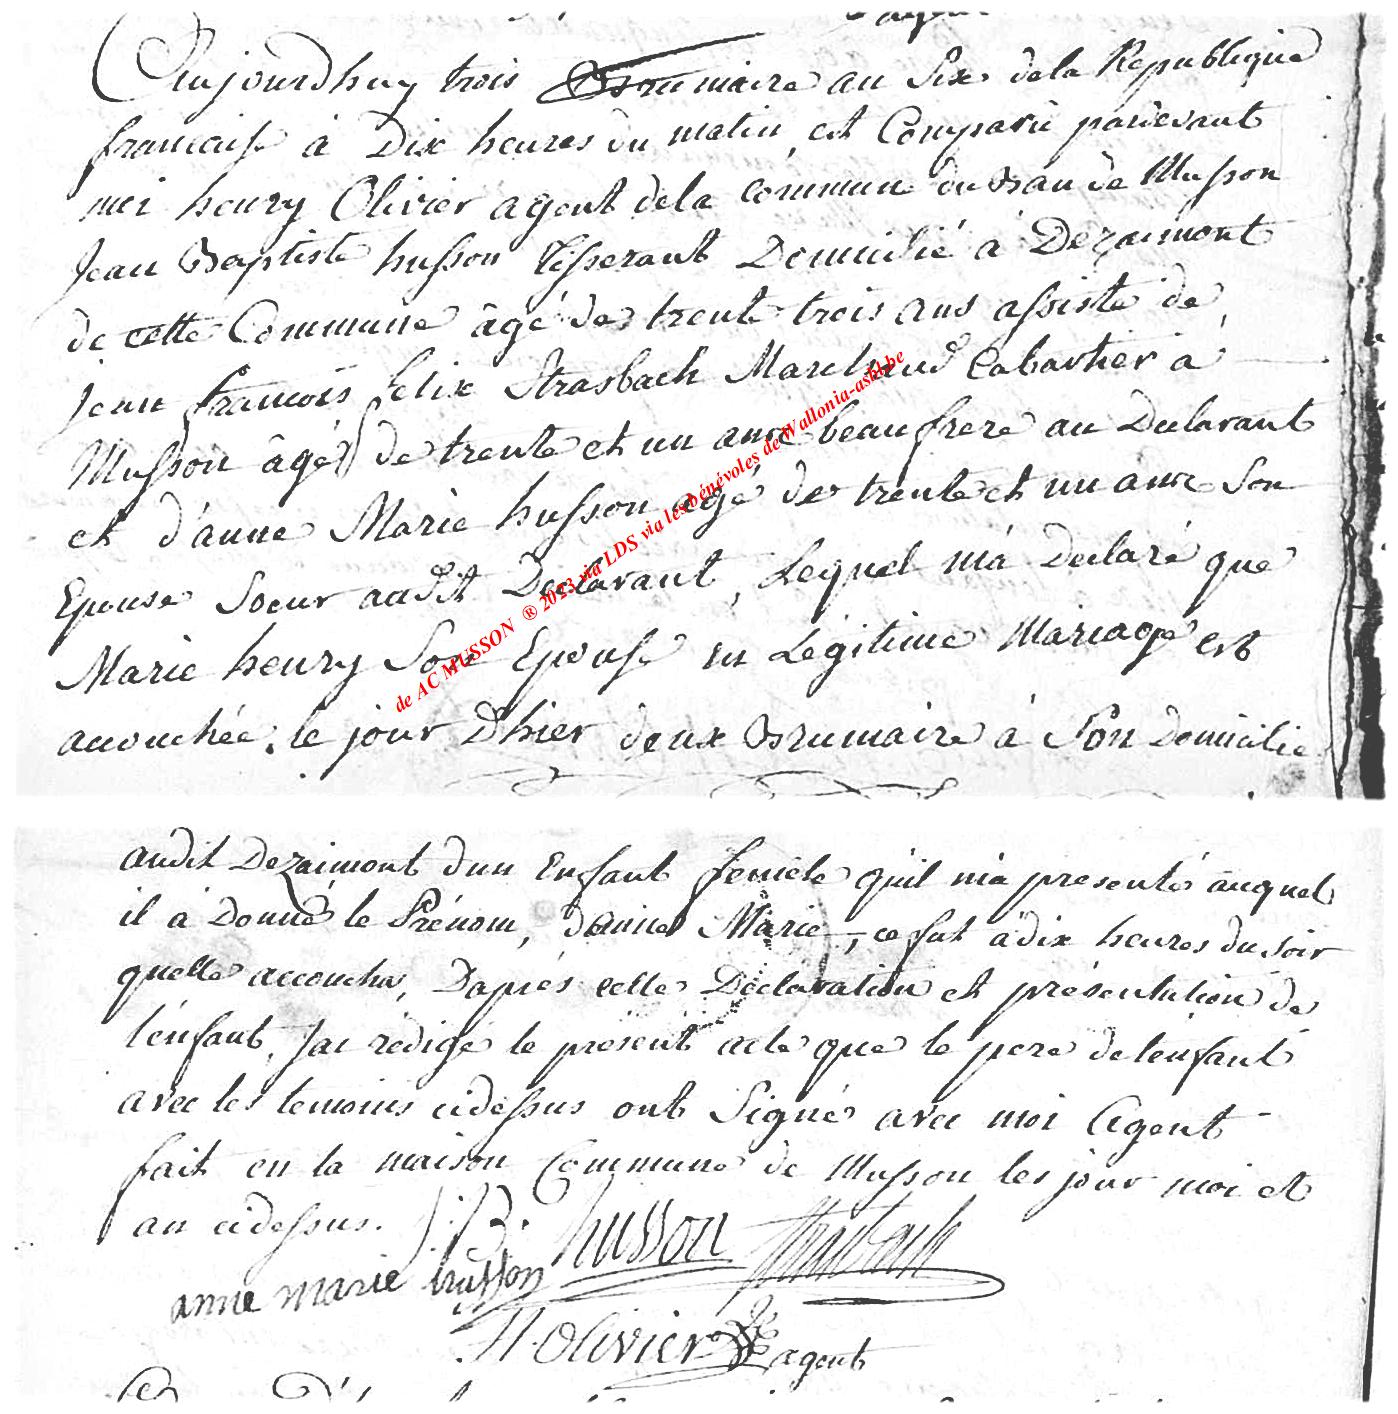 Aujourdhuy trois Brumaire an Six dela Republique
francaise à Dix heures du matin, est Comparu pardevant
moi henry Olivier agent dela commune du Ban de Musson
Jean Baptiste husson tisserant Domicilié à Dezaimont
de cette Commune âgé de trente trois ans assisté de
jean francois felix Strasbach Marchand Cabartier à
Musson âgé de trente et un ans beaufrere au Declarant
et d'anne Marie husson agé de trente et un ans Son
Epouse Soeur audit Declarant, Lequel m'a declaré que
Marie henry Son Epouse en Légitime Mariage est
accouchée le jour D'hier deux Brumaire à Son Domicilie
audit Dezaimont dun Enfant femele qu'il m'a presenté auquel
il à Donné le Prénom, danne Marie, ce fut à dix heures du soir
quelle accoucha, Dapiés cette Déclaration et présentation de
l'enfant, Jai rédigé le présent acte que le pere delenfant
avec les temoins cidessus ont Signé avec moi Agent
fait en la maison Commune de Musson les jour moi et
an cidessus. J:B: husson Strasbach
anne marie husson
H. Olivier agent
de AC MUSSON ® 2023 via LDS via les bénévoles de Wallonia-asbl.be